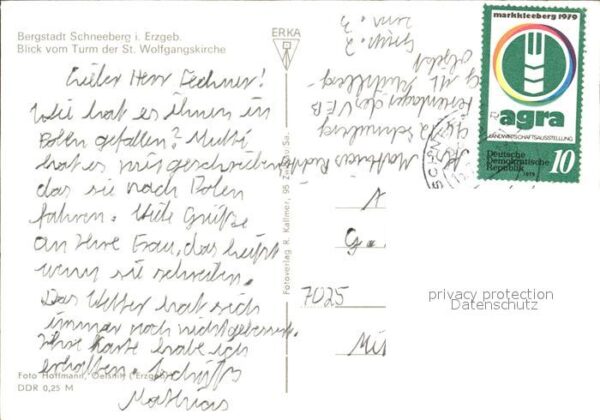 Bergstadt Schneeberg i. Erzgeb.
Blick vom Turm der St. Wolfgangskirche
Lieber Herr Lechner!
Wie hat es Ihnen in
Polen gefallen? Mutti
hat es mir geschrieben
das sie nach Polen
fahren. Viele Grüße
an Ihre Frau, das heißt
wenn sie schreiben.
Das Wetter hat sich
immer noch nicht gebessert.
Ihre Karte habe ich
erhalten.
Mathias
Foto Hoffmann, Oelsnitz (Erzgeb.)
DDR 0,25 M
ERKA
Fotoverlag R. Kallmer, 95 Zwickau Sa.
Matthias
Schneeberg
Ferienlager des VEB
7025
markkleeberg 1979
agra
LANDWIRTSCHAFTSAUSSTELLUNG
Deutsche
Demokratische
Republik
1979
10
privacy protection
Datenschutz